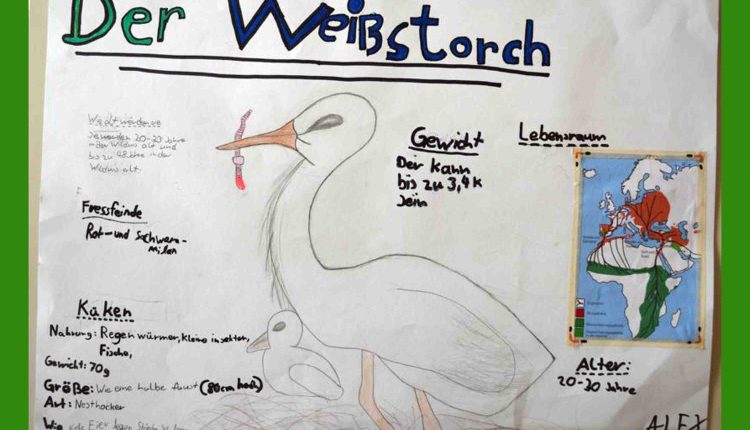 Der Weißstorch
Wie alt werden sie
Sie werden 20-30 Jahre
in der Wildnis alt und
bis zu 48 Jhre in der
Wildnis alt.
Fressfeinde
Rot-und Schwarz-
Milan
Gewicht
Der kann
bis zu 3,4 K
sein
Lebensraum
Alter:
20-30 Jahre
Küken
Nahrung: Regenwürmer, kleine insekten,
Fische,
Gewicht: 70g
Größe: Wie eine halbe faust (80cm hoch)
Art: Nesthocker
Wie viele Eier legen
ALEX